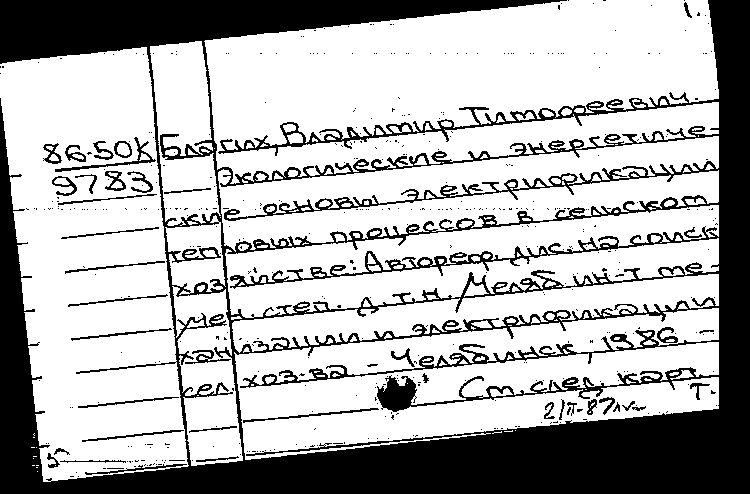 1.
86-50К Благих, Владимир Тимофеевич.
9783 Экологические и энергетиче-
ские основы электрификации
тепловых процессов в сельском
хозяйстве: Автореф. дис. на соиск
учен. степ. д.т.н. / Челяб ин-т ме-
ханизации и электрификации
сел. хоз-ва - Челябинск, 1986. -
См. след. карт.
Т.